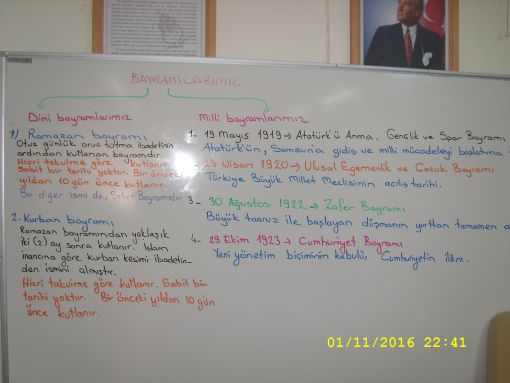 BAYRAMLARIMIZ
Dini bayramlarımız
1) Ramazan bayramı
Otuz günlük oruç tutma ibadetinin
ardından kutlanan bayramdır.
Hicri takvime göre kutlanır.
Sabit bir tarihi yoktur. Bir önceki
yıldan 10 gün önce kutlanır.
Bir diğer ismi de, Şeker Bayramıdır.
2-Kurban bayramı
Ramazan bayramından yaklaşık
iki (2) ay sonra kutlanır. İslam
inancına göre kurban kesimi ibadetin-
den ismini almıştır.
Hicri takvime göre kutlanır. Sabit bir
tarihi yoktur. Bir önceki yıldan 10 gün
önce kutlanır.
Milli bayramlarımız
1- 19 Mayıs 1919 → Atatürk'ü Anma, Gençlik ve Spor Bayramı
Atatürk'ün, Samsun'a gidiş ve milli mücadeleyi başlatma.
23 Nisan 1920 → Ulusal Egemenlik ve Çocuk Bayramı
Türkiye Büyük Millet Meclisinin açılış tarihi.
3- 30 Ağustos 1922 → Zafer Bayramı
Büyük taaruz ile başlayan düşmanın yurttan tamamen a
4- 29 Ekim 1923 → Cumhuriyet Bayramı
Yeni yönetim biçiminin kabulü, Cumhuriyetin ilânı.
01/11/2016 22:41